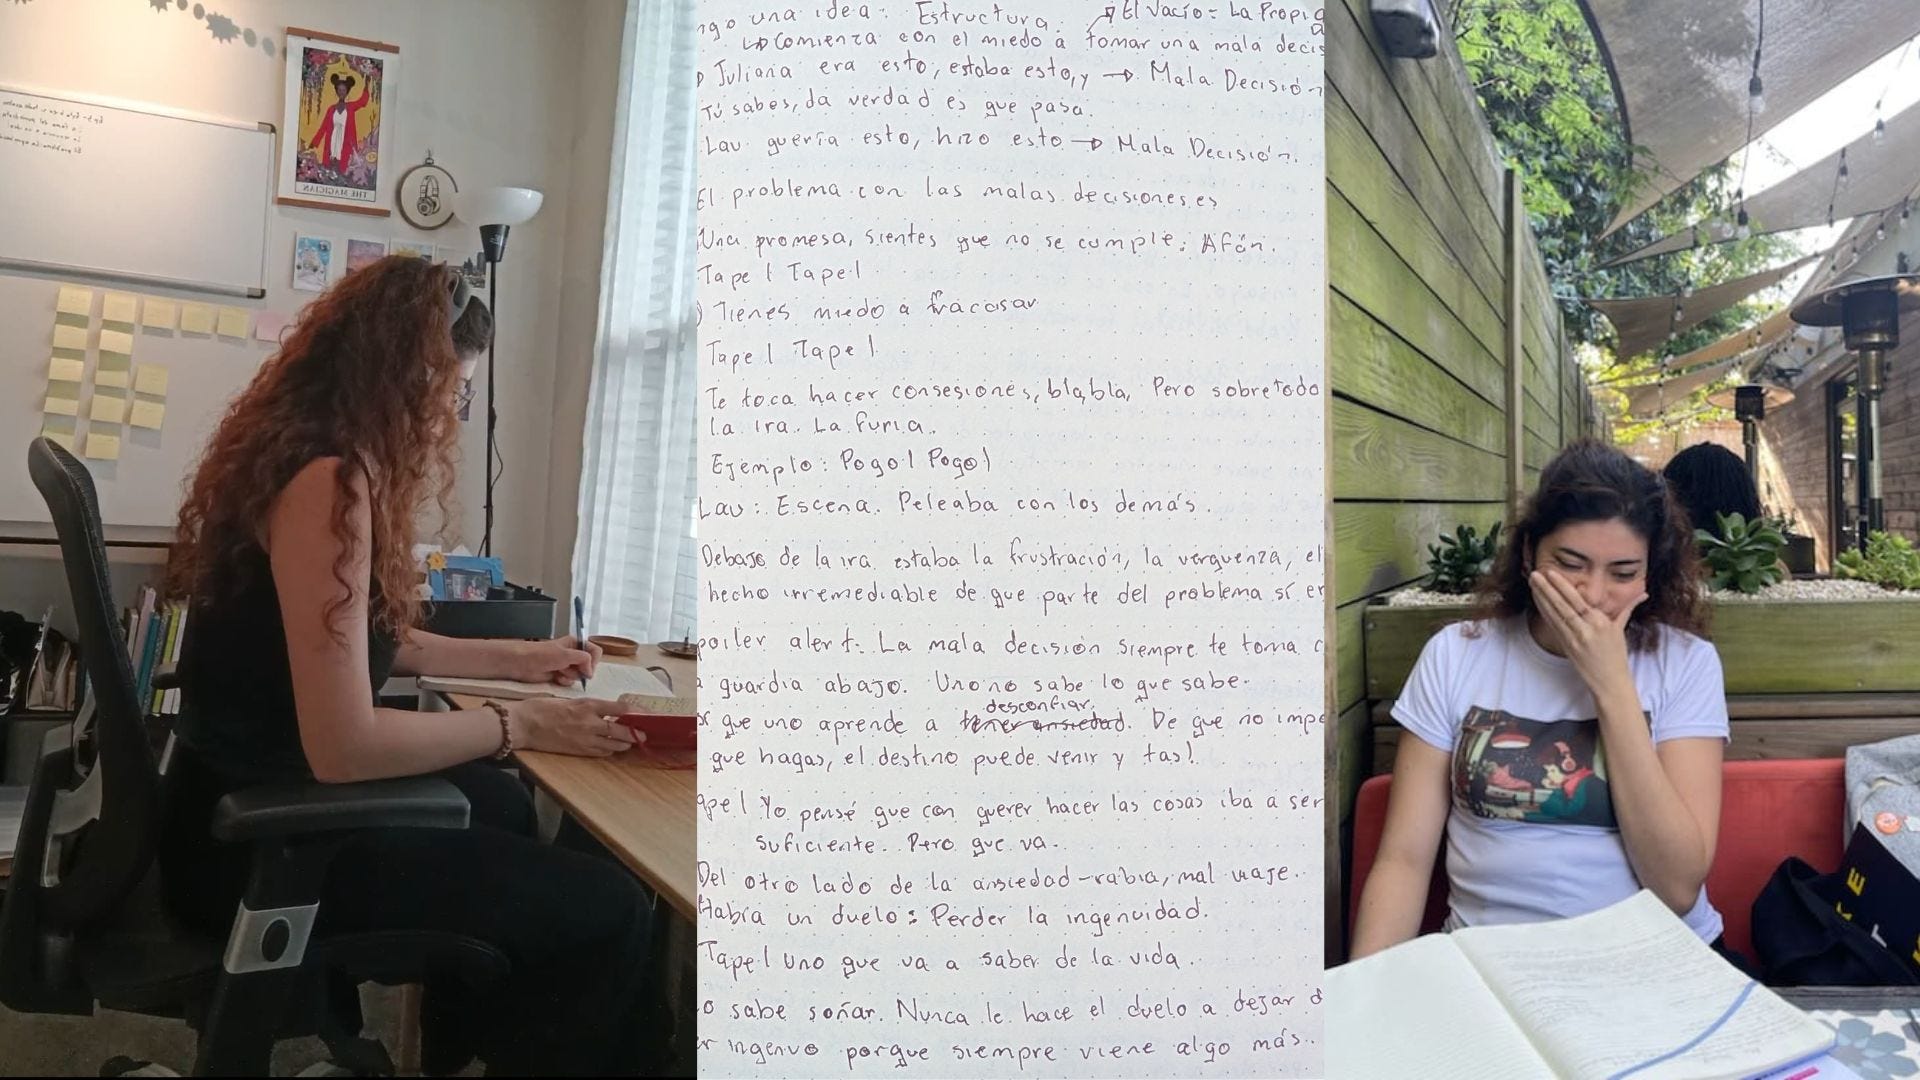 THE MAGICIAN
ngo una idea: Estructura. → El Vacío = La Propia
↳ Comienza con el miedo a tomar una mala decis
Juliana era esto, estaba esto, y → Mala Decisión
Tú sabes, da verdad es que pasa.
Lau quería esto, hizo esto → Mala Decisión.
El problema con las malas decisiones es
Una promesa, sientes que no se cumple: Afán.
Tape! Tape!
) Tienes miedo a fracasar
Tape! Tape!
Te toca hacer consesiones, blabla, Pero sobretodo
la ira. La furia.
Ejemplo: Pogo! Pogo!
Lau: Escena. Peleaba con los demás.
Debajo de la ira estaba la frustración, la verguenza, el
hecho irremediable de que parte del problema sí er
poiler alert: La mala decisión siempre te toma c
a guardia abajo. Uno no sabe lo que sabe.
desconfiar.
or que uno aprende a tener ansiedad. De que no impo
que hagas, el destino puede venir y tas!
ape! Yo pensé que con querer hacer las cosas iba a ser
suficiente. Pero que va.
Del otro lado de la ansiedad-rabia, mal viaje.
Habría un duelo: Perder la ingenuidad.
Tape! Uno que va a saber de la vida.
o sabe soñar. Nunca le hace el duelo a dejar d
er ingenuo porque siempre viene algo más.